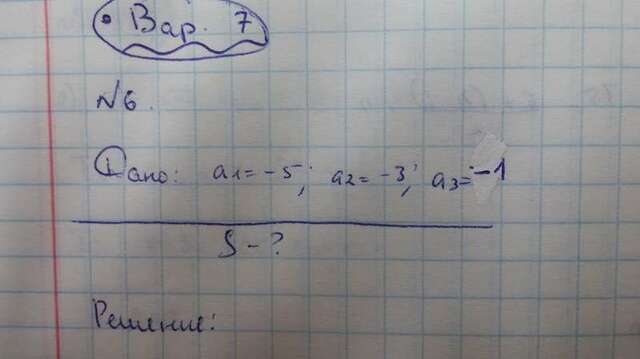 Вар. 7
№6.
Дано: a1=-5; a2=-3; a3=-1
S-?
Решение: